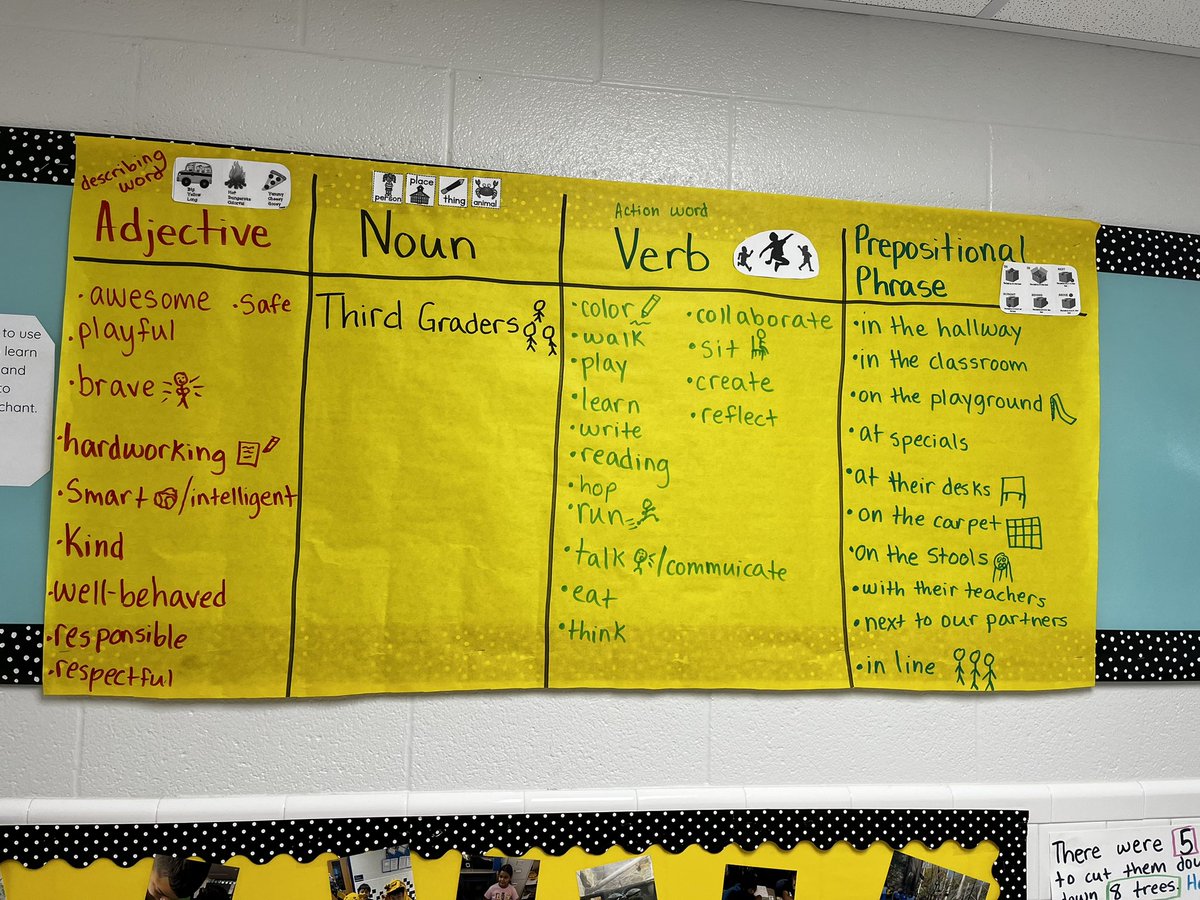 describing
word
Big
Yellow
Long
Hot
Dangerous
Colorful
Yummy
Cheesy
Gooey
Adjective
• awesome
• Safe
• playful
• brave
• hardworking
• Smart /intelligent
• Kind
• well-behaved
• responsible
• respectful
person
place
thing
animal
Noun
Third Graders
Action word
Verb
• color
• walk
• play
• learn
• write
• reading
• hop
• run
• talk /commuicate
• eat
• think
• collaborate
• sit
• create
• reflect
Prepositional
Phrase
• in the hallway
• in the classroom
• on the playground
• at specials
• at their desks
• on the carpet
• on the Stools
• with their teachers
• next to our partners
• in line
to use
learn
and
to
chant.
There were 5
to cut them dow
down 8 trees.